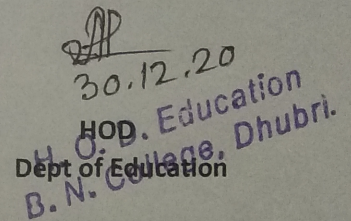 30.12.20
HOD
Dept of Education
H. O. D. Education
B. N. College, Dhubri.